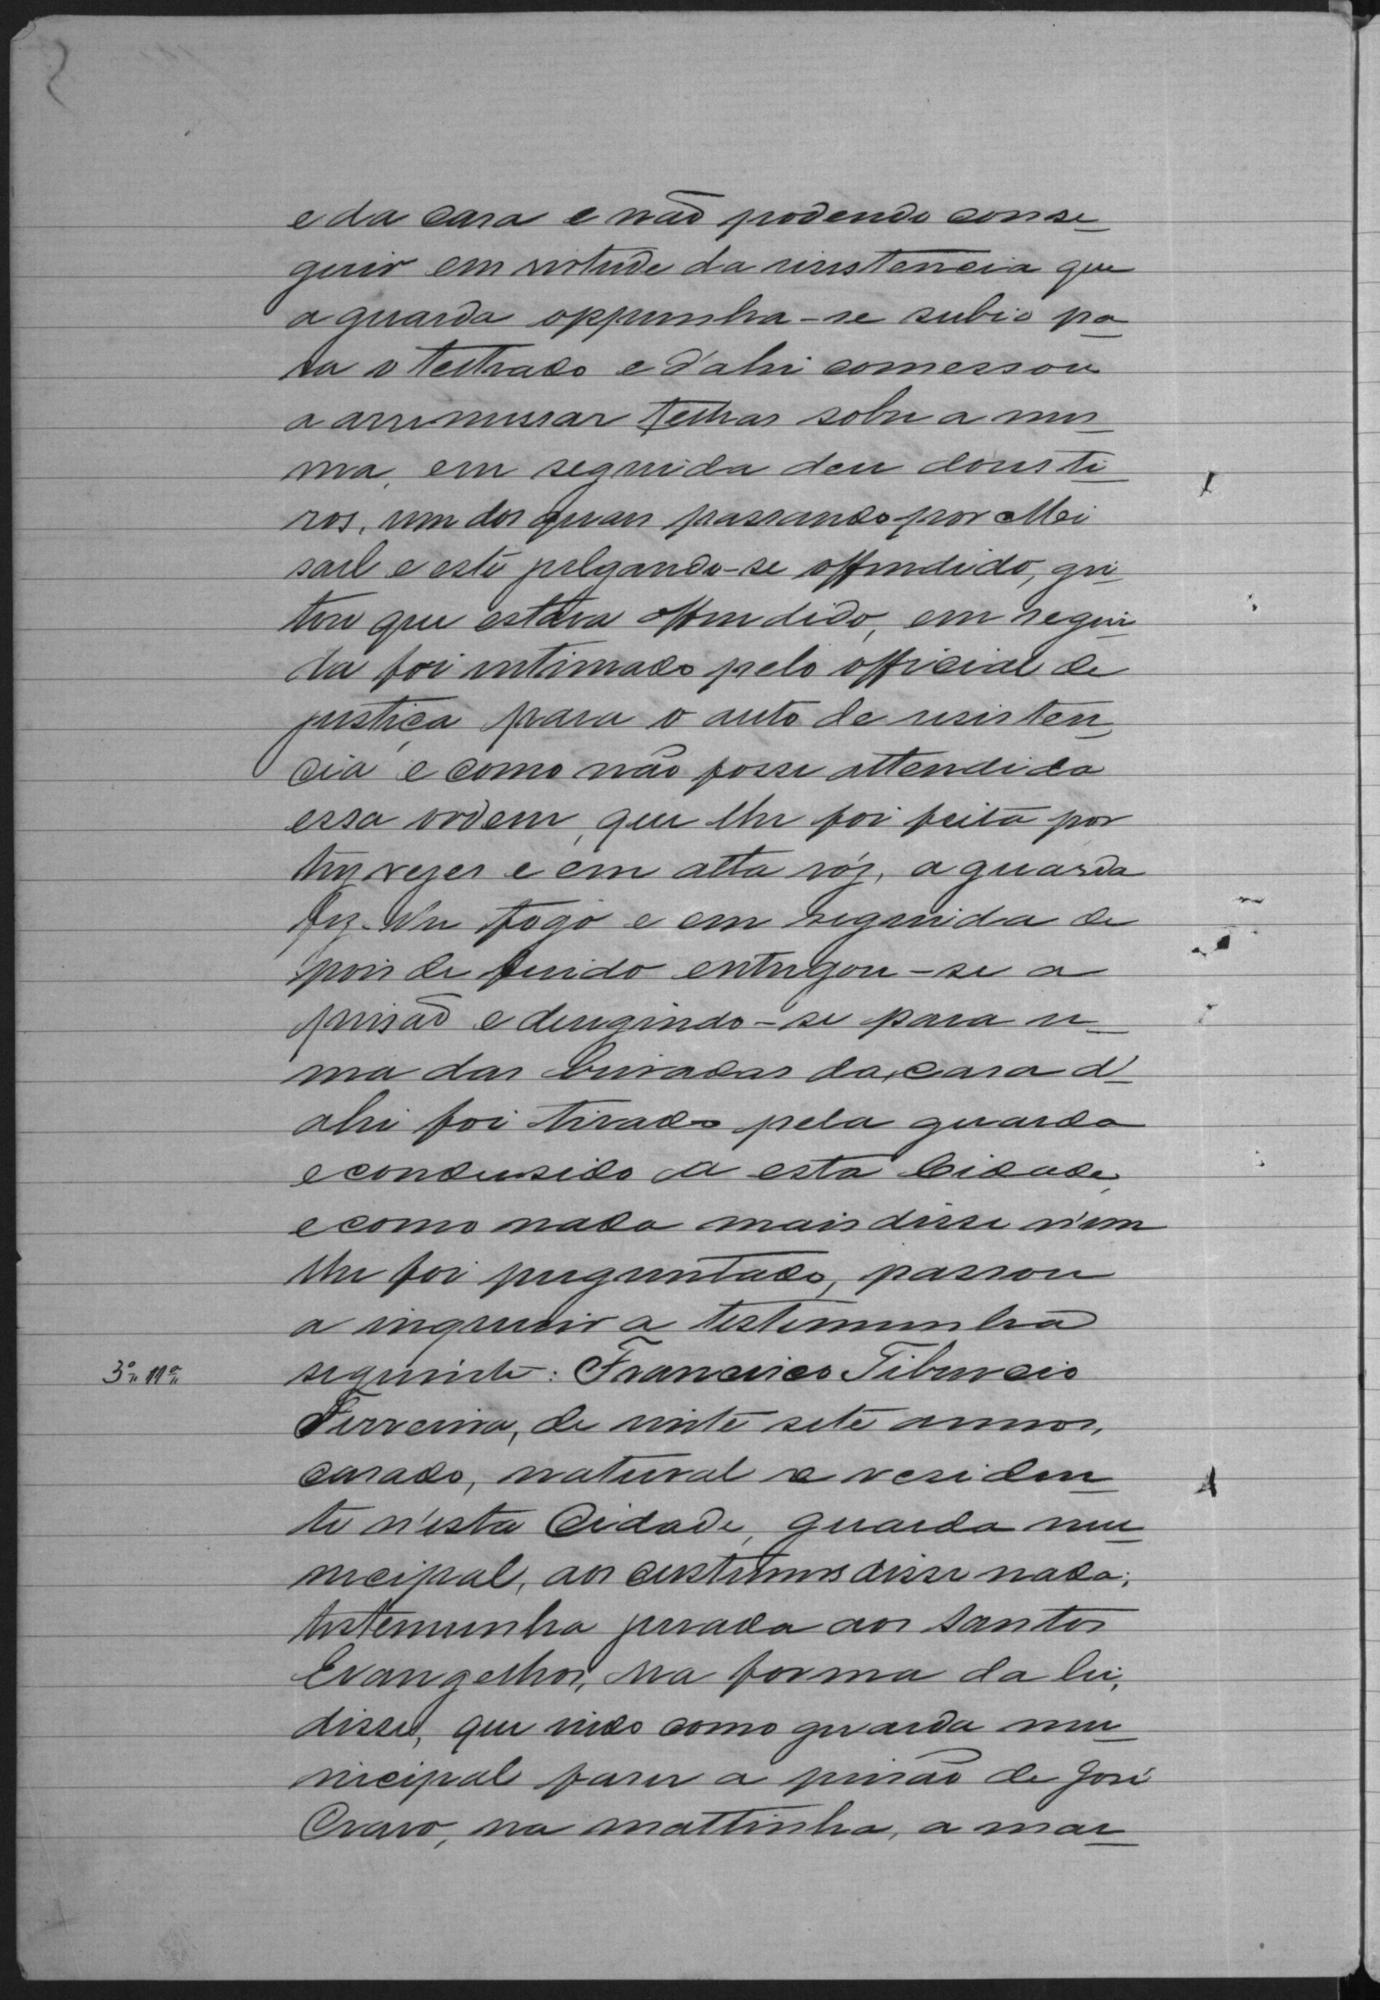 e da casa e não podendo conse
guir em virtude da risistencia que
a guarda oppunha-se subio pa
ra o telhado e d'ahi comessou
a arremessar telhas sobre a mes
ma, em seguida deu dous ti
ros, um dos quaes passando por Mei
sael e este julgando-se offendido, gri
tou que estava offendido, em segui
da foi intimado pelo official de
justiça para o auto de resisten
cia e como não fosse attendida
essa ordem, que lhe foi feita por
trez vezes e em alta vóz, a guarda
fez-lhe fogo e em seguida de
pois de ferido entregou-se a
prisão e deregindo-se para u
ma das buracas da casa d'
ahi foi tirado pela guarda
e condusido a esta Cidade,
e como nada mais disse n'em
lhe foi preguntado, passou
a inquerir a testemunha
3ª, 11ª,
seguinte: Francisco Tiburcio
Ferreira, de vinte sete annos,
casado, natural e residen
te n'esta Cidade, guarda mu
nicipal, aos custumes disse nada;
testemunha jurada aos Santos
Evangelhos, na forma da lei,
disse, que indo como guarda mu
nicipal faser a prisão de José
Cravo, na mattinha, a mar